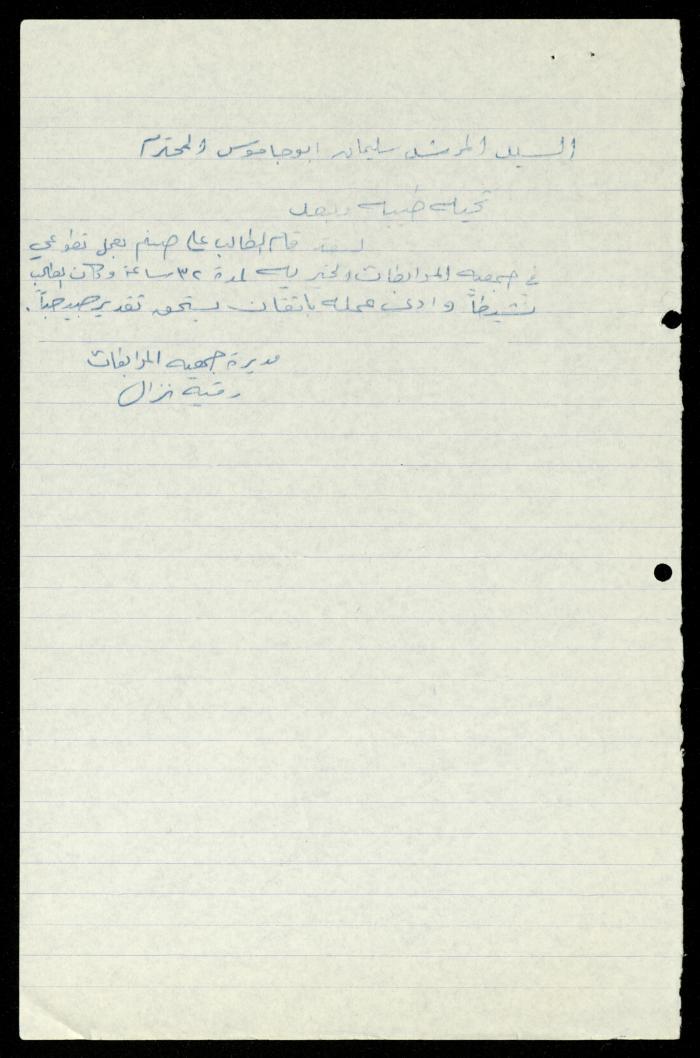 السيد المرشد سليمان ابو جاموس المحترم
تحيه طيبه وبعد
لقد قام الطالب علي بعمل تطوعي
في جمعيه المرابطات الخيريه لمدة ٣٢ ساعة وكان الطالب
نشيطاً وادى عمله باتقان يستحق تقدير جيد جداً.
مديرة جمعيه المرابطات
رقيه نزال